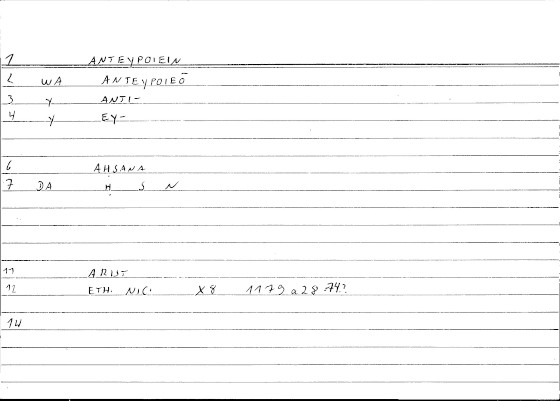 1 ANTEYPOIEIN
2 WA ANTEYPOIEŌ
3 Y ANTI-
4 Y EY-
6 AḤSANA
7 DA Ḥ S N
11 ARIST
12 ETH. NIC. X8 1179a28
14